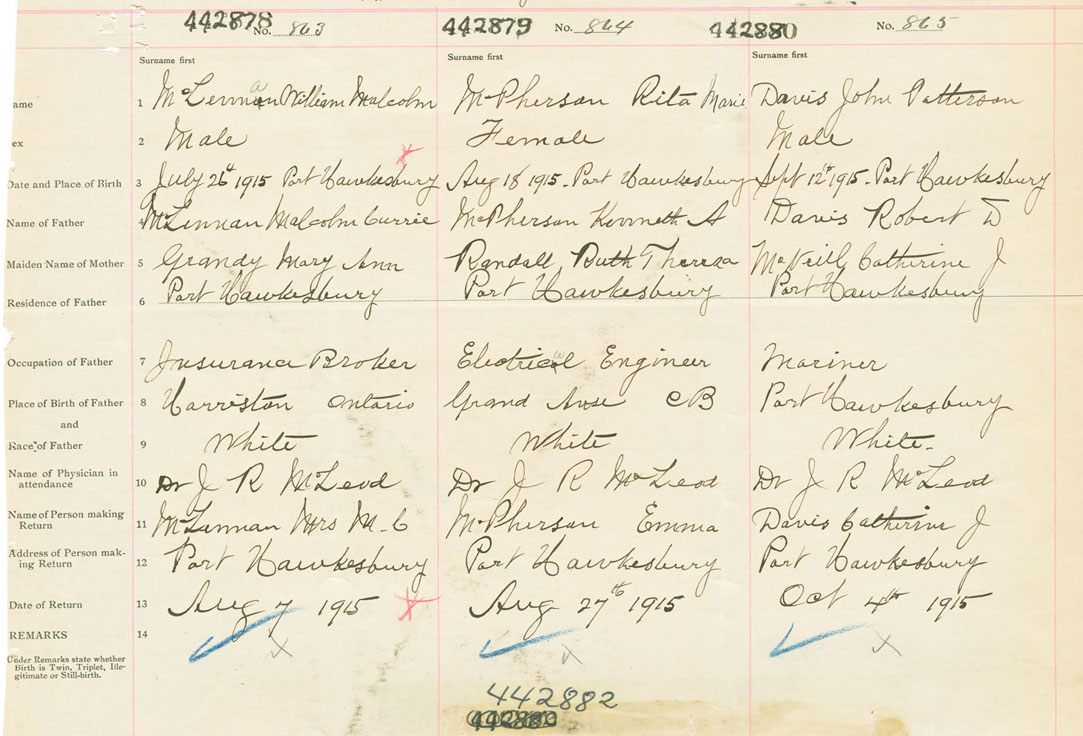 442878 No. 863 442879 No. 864 442880 No. 865
Surname first Surname first Surname first
ame 1 McLennan William Malcolm McPherson Rita Marie Davis John Patterson
ex 2 Male Female Male
Date and Place of Birth 3 July 26th 1915 Port Hawkesbury Aug 18 1915 - Port Hawkesbury Sept 12th 1915 - Port Hawkesbury
Name of Father 4 McLennan Malcolm Currie McPherson Kenneth A Davis Robert D
Maiden Name of Mother 5 Grandy Mary Ann Randall Ruth Thereza McNeill Catherine J
Residence of Father 6 Port Hawkesbury Port Hawkesbury Port Hawkesbury
Occupation of Father 7 Insurance Broker Electrical Engineer Mariner
Place of Birth of Father 8 Harriston Ontario Grand Anse CB Port Hawkesbury
and
Race of Father 9 White White White -
Name of Physician in
attendance 10 Dr J R McLeod Dr J R McLeod Dr J R McLeod
Name of Person making
Return 11 McLennan Mrs M. C McPherson Emma Davis Catherine J
Address of Person mak-
ing Return 12 Port Hawkesbury Port Hawkesbury Port Hawkesbury
Date of Return 13 Aug 7 1915 Aug 27th 1915 Oct 4th 1915
REMARKS 14
Under Remarks state whether
Birth is Twin, Triplet, Ille-
gitimate or Still-birth.
442882